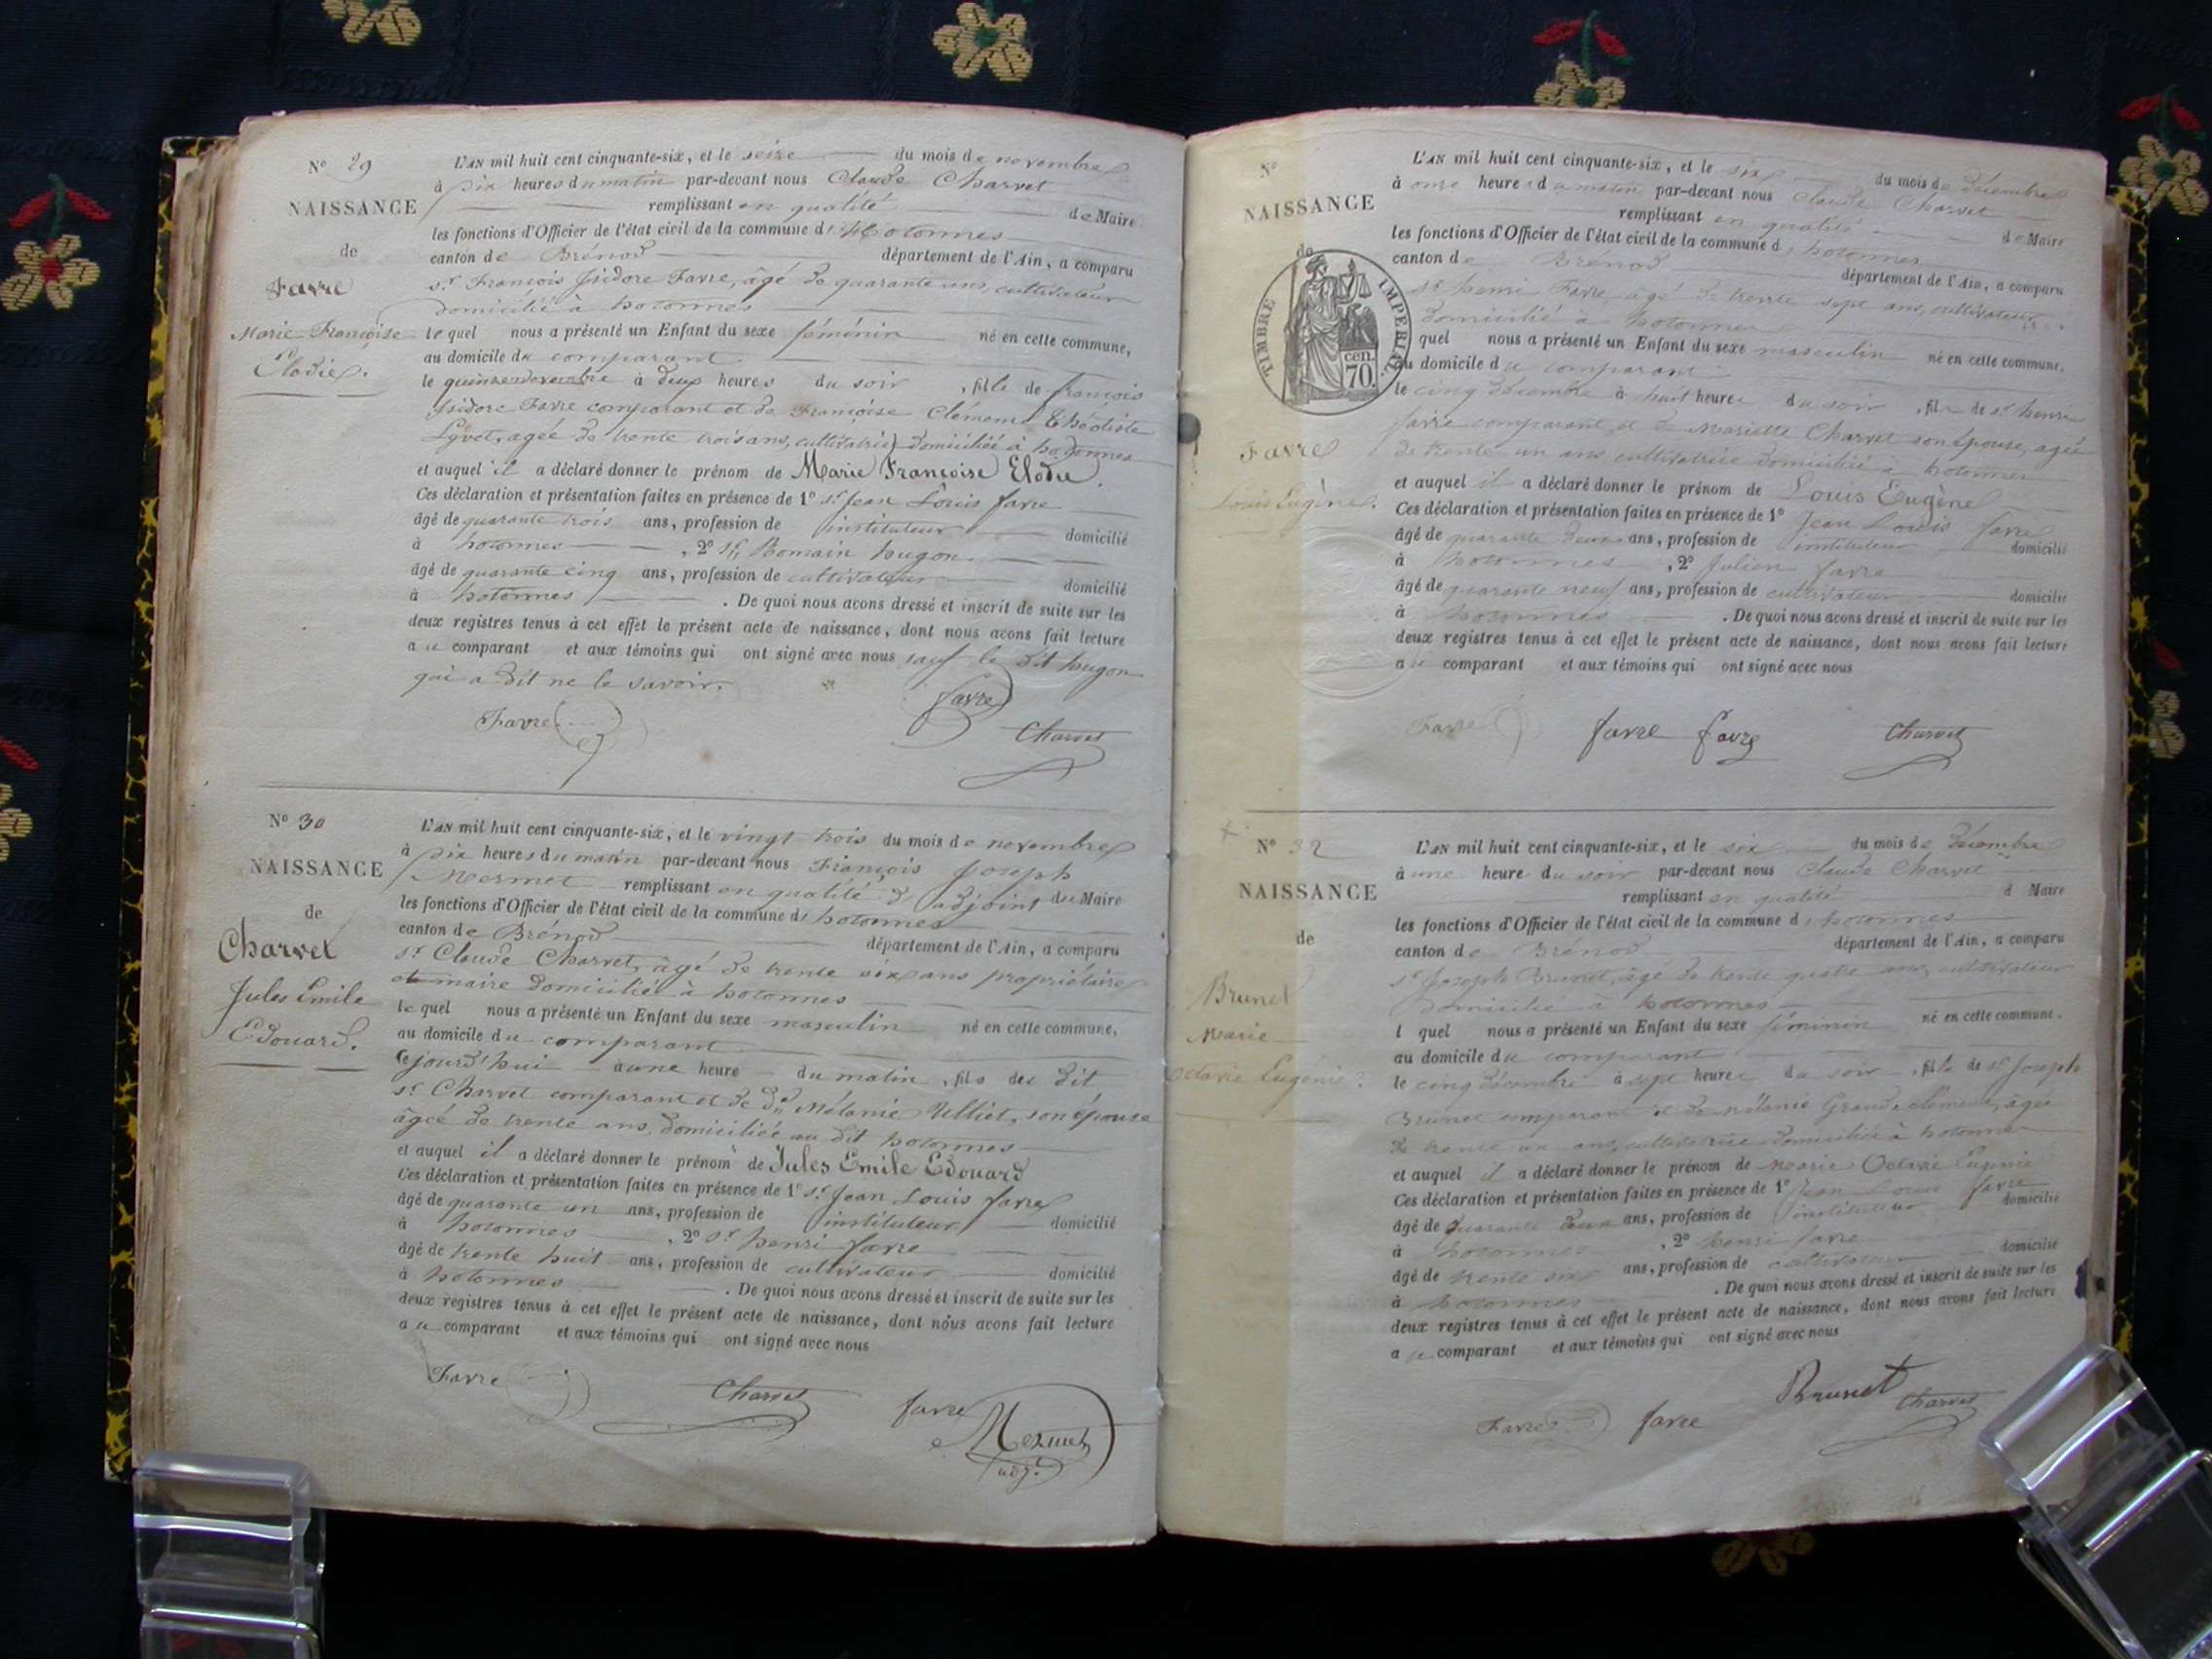 N° 29
NAISSANCE
de
Favre
Marie Françoise
Elodie.
L'AN mil huit cent cinquante-six, et le seize du mois de novembre
à dix heures du matin par-devant nous Claude Charvet
remplissant en qualité de Maire
les fonctions d'Officier de l'état civil de la commune d' hotonnes
canton de Brénod département de l'Ain, a comparu
sr. François Isidore Favre, âgé de quarante ans, cultivateur
domicilié à hotonnes
lequel nous a présenté un Enfant du sexe féminin né en cette commune,
au domicile du comparant
le quinze novembre à deux heures du soir, fille de françois
Isidore Favre comparant et de Françoise Clémence Théotiste
Lyvet, agée de trente trois ans, cultivatrice domiciliée à hotonnes
et auquel il a déclaré donner le prénom de Marie Françoise Elodie.
Ces déclaration et présentation faites en présence de 1° sr. Jean Louis favre
âgé de quarante trois ans, profession de instituteur domicilié
à hotonnes, 2° sr. Romain hugon
âgé de quarante cinq ans, profession de cultivateur domicilié
à hotonnes. De quoi nous avons dressé et inscrit de suite sur les
deux registres tenus à cet effet le présent acte de naissance, dont nous avons fait lecture
au comparant et aux témoins qui ont signé avec nous sauf le dit hugon
qui a dit ne le savoir.
Favre favre Charvet
N° 30
NAISSANCE
de
Charvet
Jules Emile
Edouard.
L'AN mil huit cent cinquante-six, et le vingt trois du mois de novembre
à dix heures du matin par-devant nous François Joseph
Mermet remplissant en qualité d'adjoint du Maire
les fonctions d'Officier de l'état civil de la commune d' hotonnes
canton de Brénod département de l'Ain, a comparu
sr. Claude Charvet, âgé de trente six ans propriétaire
et maire domicilié à hotonnes
lequel nous a présenté un Enfant du sexe masculin né en cette commune,
au domicile du comparant
Cejourd'hui à une heure du matin, fils du dit
sr. Charvet comparant et de de. Mélanie Vulliet, son épouse
âgée de trente ans, domiciliée au dit hotonnes
et auquel il a déclaré donner le prénom de Jules Emile Edouard
Ces déclaration et présentation faites en présence de 1° sr. Jean Louis favre
âgé de quarante un ans, profession de instituteur domicilié
à hotonnes, 2° sr. henri favre
âgé de trente huit ans, profession de cultivateur domicilié
à hotonnes. De quoi nous avons dressé et inscrit de suite sur les
deux registres tenus à cet effet le présent acte de naissance, dont nous avons fait lecture
au comparant et aux témoins qui ont signé avec nous
Favre Charvet favre Mermet
adj.
N°
NAISSANCE
de
TIMBRE IMPERIAL
cen.
70.
Favre
Louis Eugène.
L'AN mil huit cent cinquante-six, et le six du mois de décembre
à onze heures du matin par-devant nous Claude Charvet
remplissant en qualité de Maire
les fonctions d'Officier de l'état civil de la commune d' hotonnes
canton de Brénod département de l'Ain, a comparu
sr. henri Favre âgé de trente sept ans, cultivateur
domicilié à hotonnes
quel nous a présenté un Enfant du sexe masculin né en cette commune,
au domicile du comparant
le cinq décembre à huit heures du soir, fils de sr. henri
favre comparant et de Mariette Charvet son épouse, agée
de trente un ans cultivatrice domiciliée à hotonnes
et auquel il a déclaré donner le prénom de Louis Eugène
Ces déclaration et présentation faites en présence de 1° Jean Louis favre
âgé de quarante deux ans, profession de instituteur domicilié
à hotonnes, 2° Julien favre
âgé de quarante neuf ans, profession de cultivateur domicilié
à hotonnes. De quoi nous avons dressé et inscrit de suite sur les
deux registres tenus à cet effet le présent acte de naissance, dont nous avons fait lecture
au comparant et aux témoins qui ont signé avec nous
Favre favre favre Charvet
N° 32
NAISSANCE
de
Brunet
Marie
Octavie Eugénie
L'AN mil huit cent cinquante-six, et le six du mois de décembre
à une heure du soir par-devant nous Claude Charvet
remplissant en qualité d Maire
les fonctions d'Officier de l'état civil de la commune d' hotonnes
canton de Brénod département de l'Ain, a comparu
sr. Joseph Brunet, âgé de trente quatre ans, cultivateur
domicilié à hotonnes
l quel nous a présenté un Enfant du sexe féminin né en cette commune.
au domicile du comparant
le cinq décembre à sept heures du soir, fille de sr. Joseph
Brunet comparant et de Mélanie Grandclément, âgée
de trente un ans, cultivatrice domiciliée à hotonnes
et auquel il a déclaré donner le prénom de Marie Octavie Eugénie
Ces déclaration et présentation faites en présence de 1° Jean Louis favre
âgé de quarante deux ans, profession de instituteur domicilié
à hotonnes, 2° henri favre
âgé de trente six ans, profession de cultivateur domicilié
à hotonnes. De quoi nous avons dressé et inscrit de suite sur les
deux registres tenus à cet effet le présent acte de naissance, dont nous avons fait lecture
au comparant et aux témoins qui ont signé avec nous
Favre favre Brunet Charvet